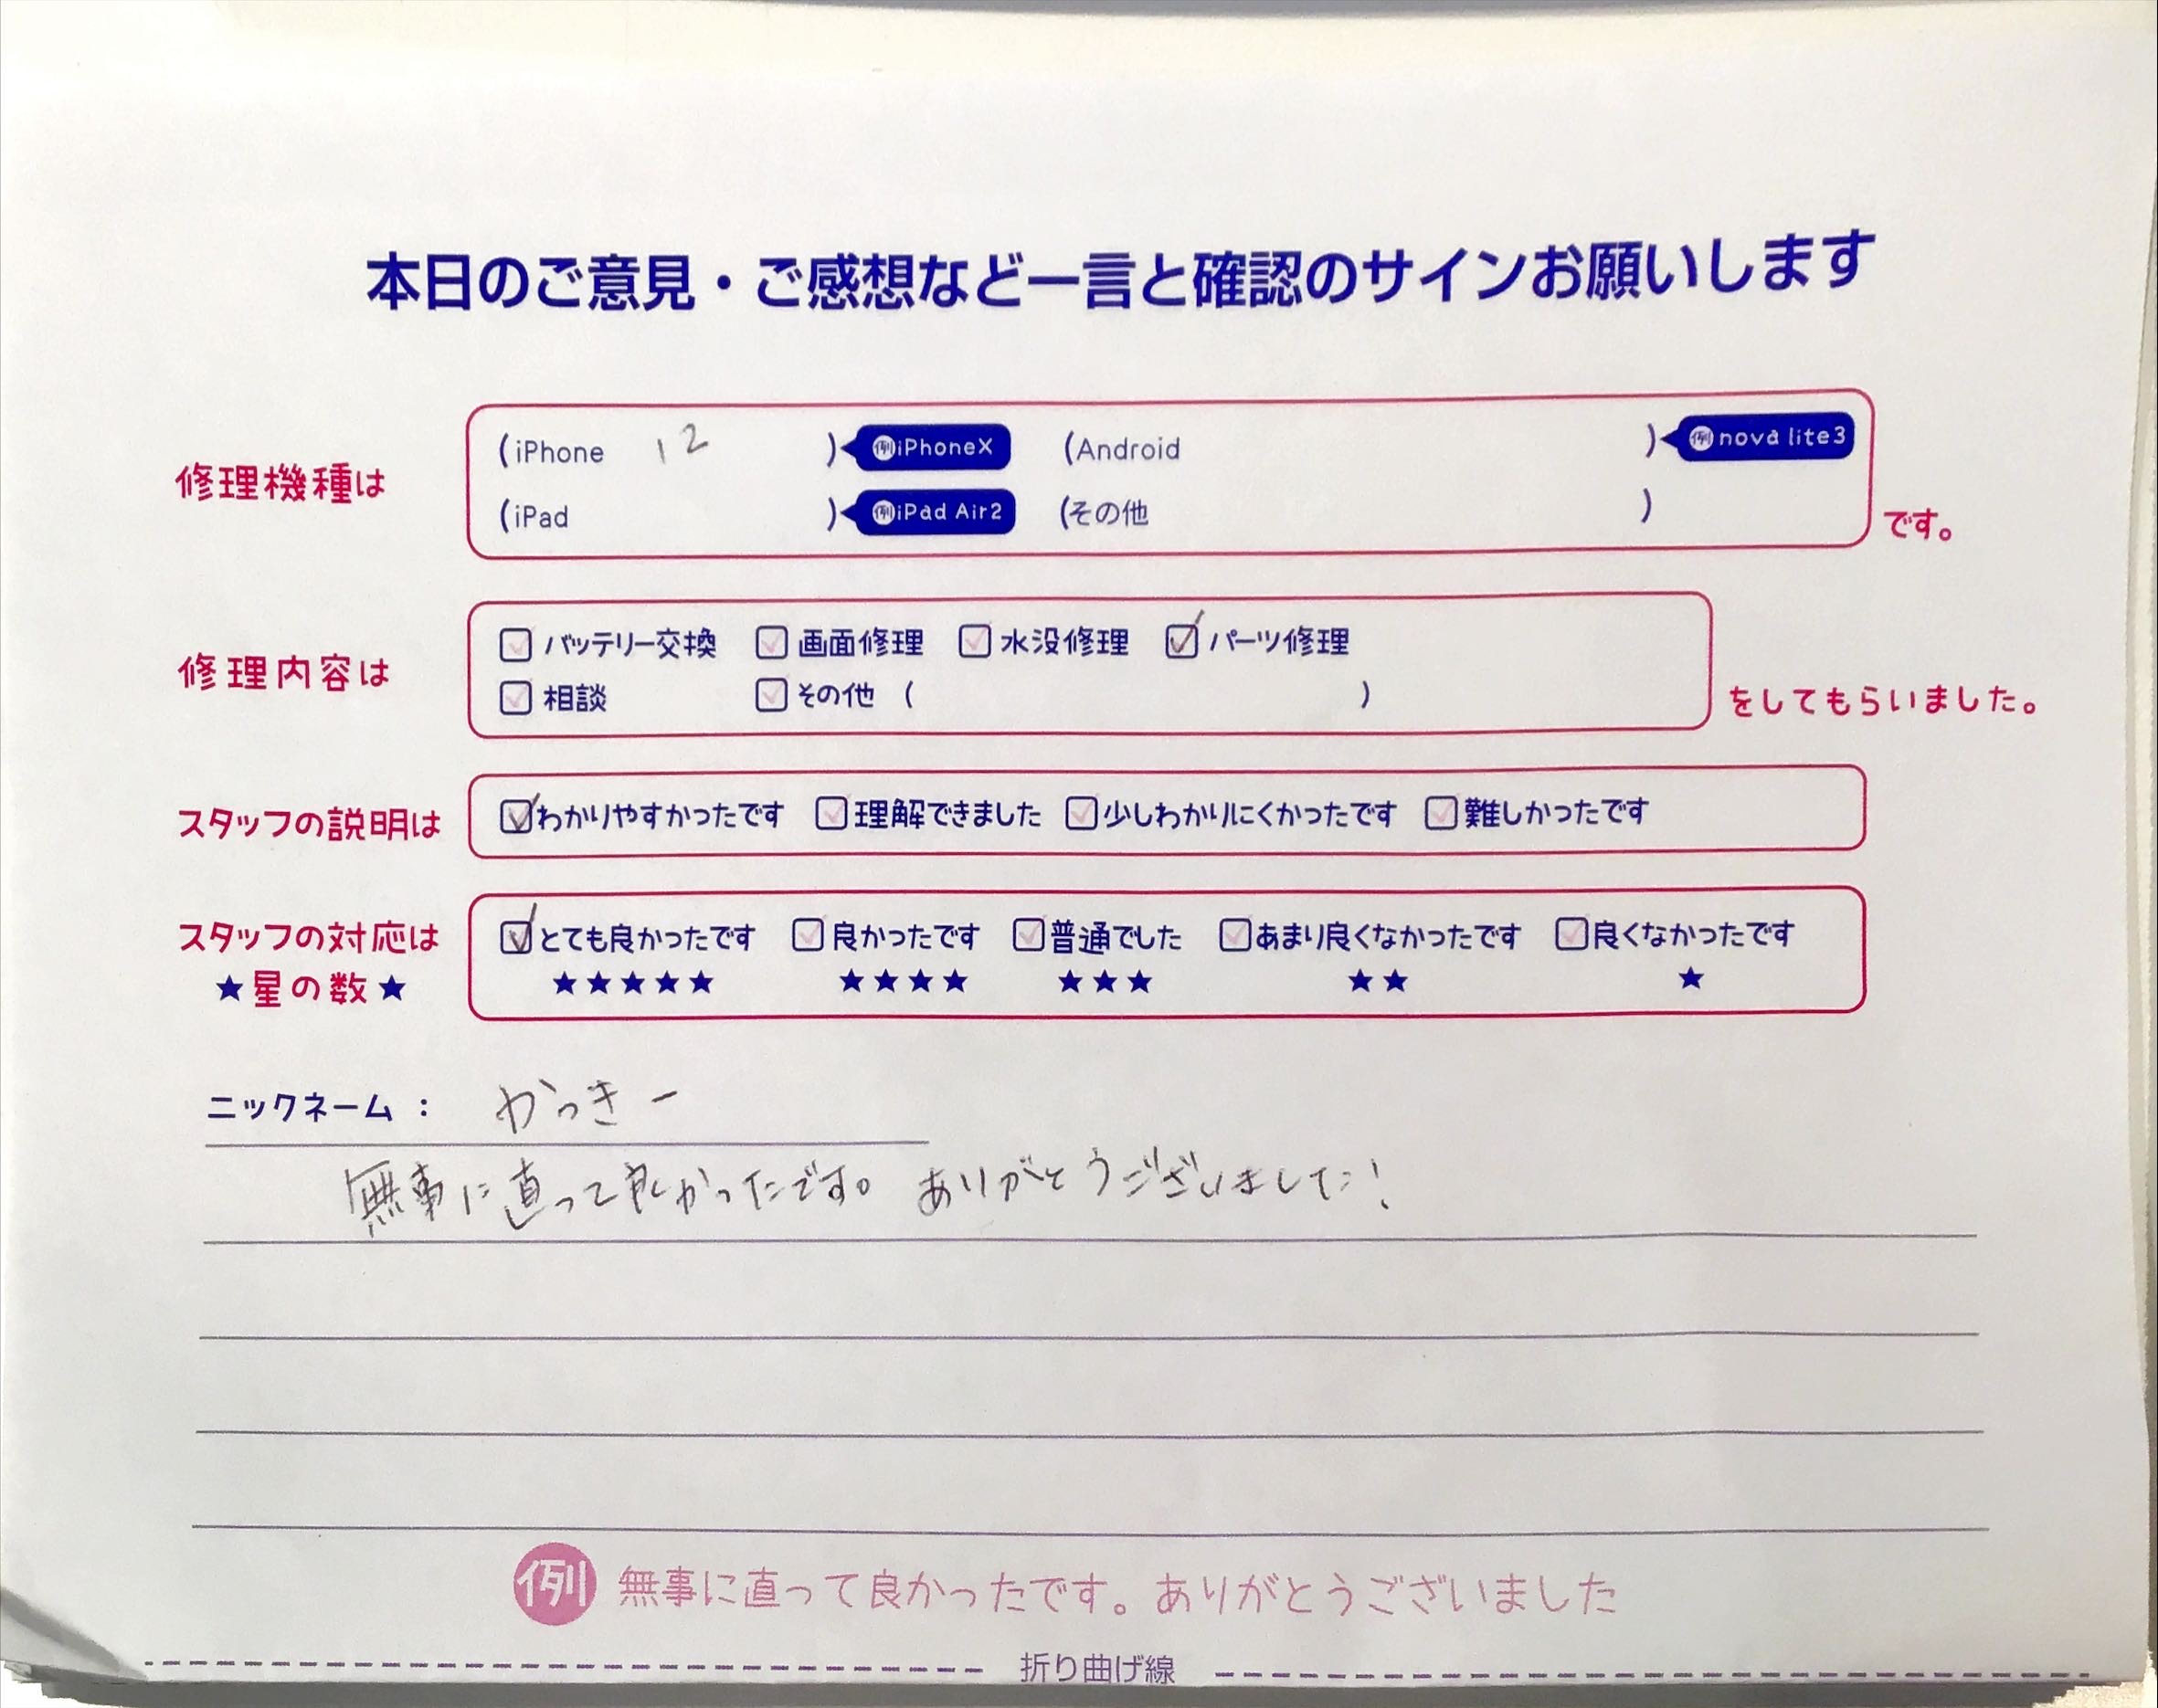 本日のご意見・ご感想など一言と確認のサインお願いします
修理機種は
(iPhone 12 ) 例iPhoneX (Android ) 例nova lite3
(iPad ) 例iPad Air2 (その他 )
です。
修理内容は
バッテリー交換 画面修理 水没修理 パーツ修理
相談 その他 ( )
をしてもらいました。
スタッフの説明は わかりやすかったです 理解できました 少しわかりにくかったです 難しかったです
スタッフの対応は とても良かったです 良かったです 普通でした あまり良くなかったです 良くなかったです
★星の数★ ★★★★★ ★★★★ ★★★ ★★ ★
ニックネーム： かっきー
無事に直って良かったです。ありがとうございました!
例 無事に直って良かったです。ありがとうございました
折り曲げ線